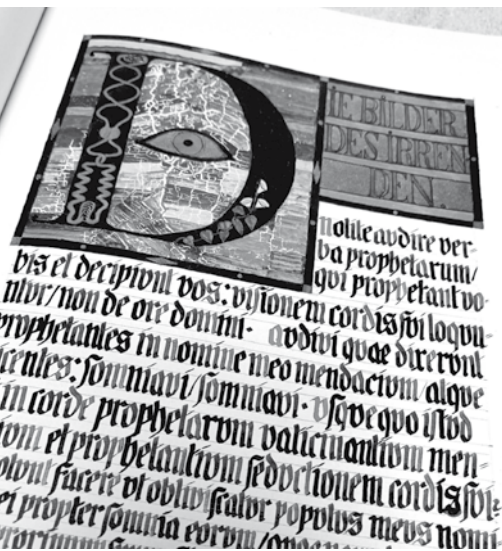 DIE BILDER
DES IRREN
DEN.
nolite avdire ver-
ba prophetarum/
qvi prophetant vo-
bis et decipivnt vos: visionem cordis svi loqvu-
ntvr/non de ore domini· avdivi qvae dixervnt
prophetantes in nomine meo mendacivm/atqve
centes: somniavi/somniavi· vsqve qvo istvd
in corde prophetarvm vaticinantivm men-
et prophetantivm sedvctionem cordis svi:
facere vt obliviscatvr popvlvs mevs
ei propter somnia eorvm/